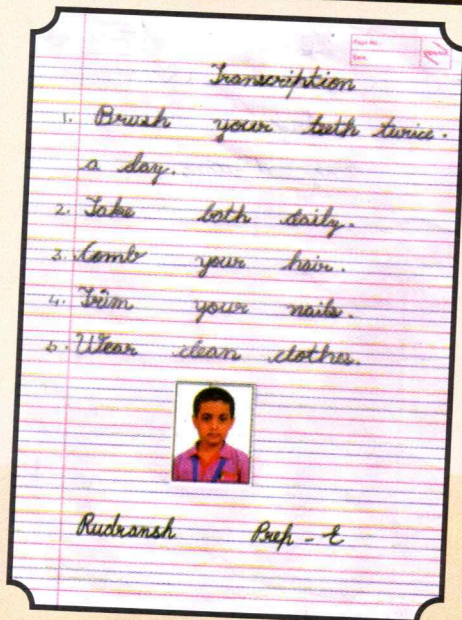 Page No.:
Date:
Transcription
1. Brush your teeth twice.
a day.
2. Take bath daily.
3. Comb your hair.
4. Trim your nails.
5. Wear clean clothes.
Rudransh Prep - E